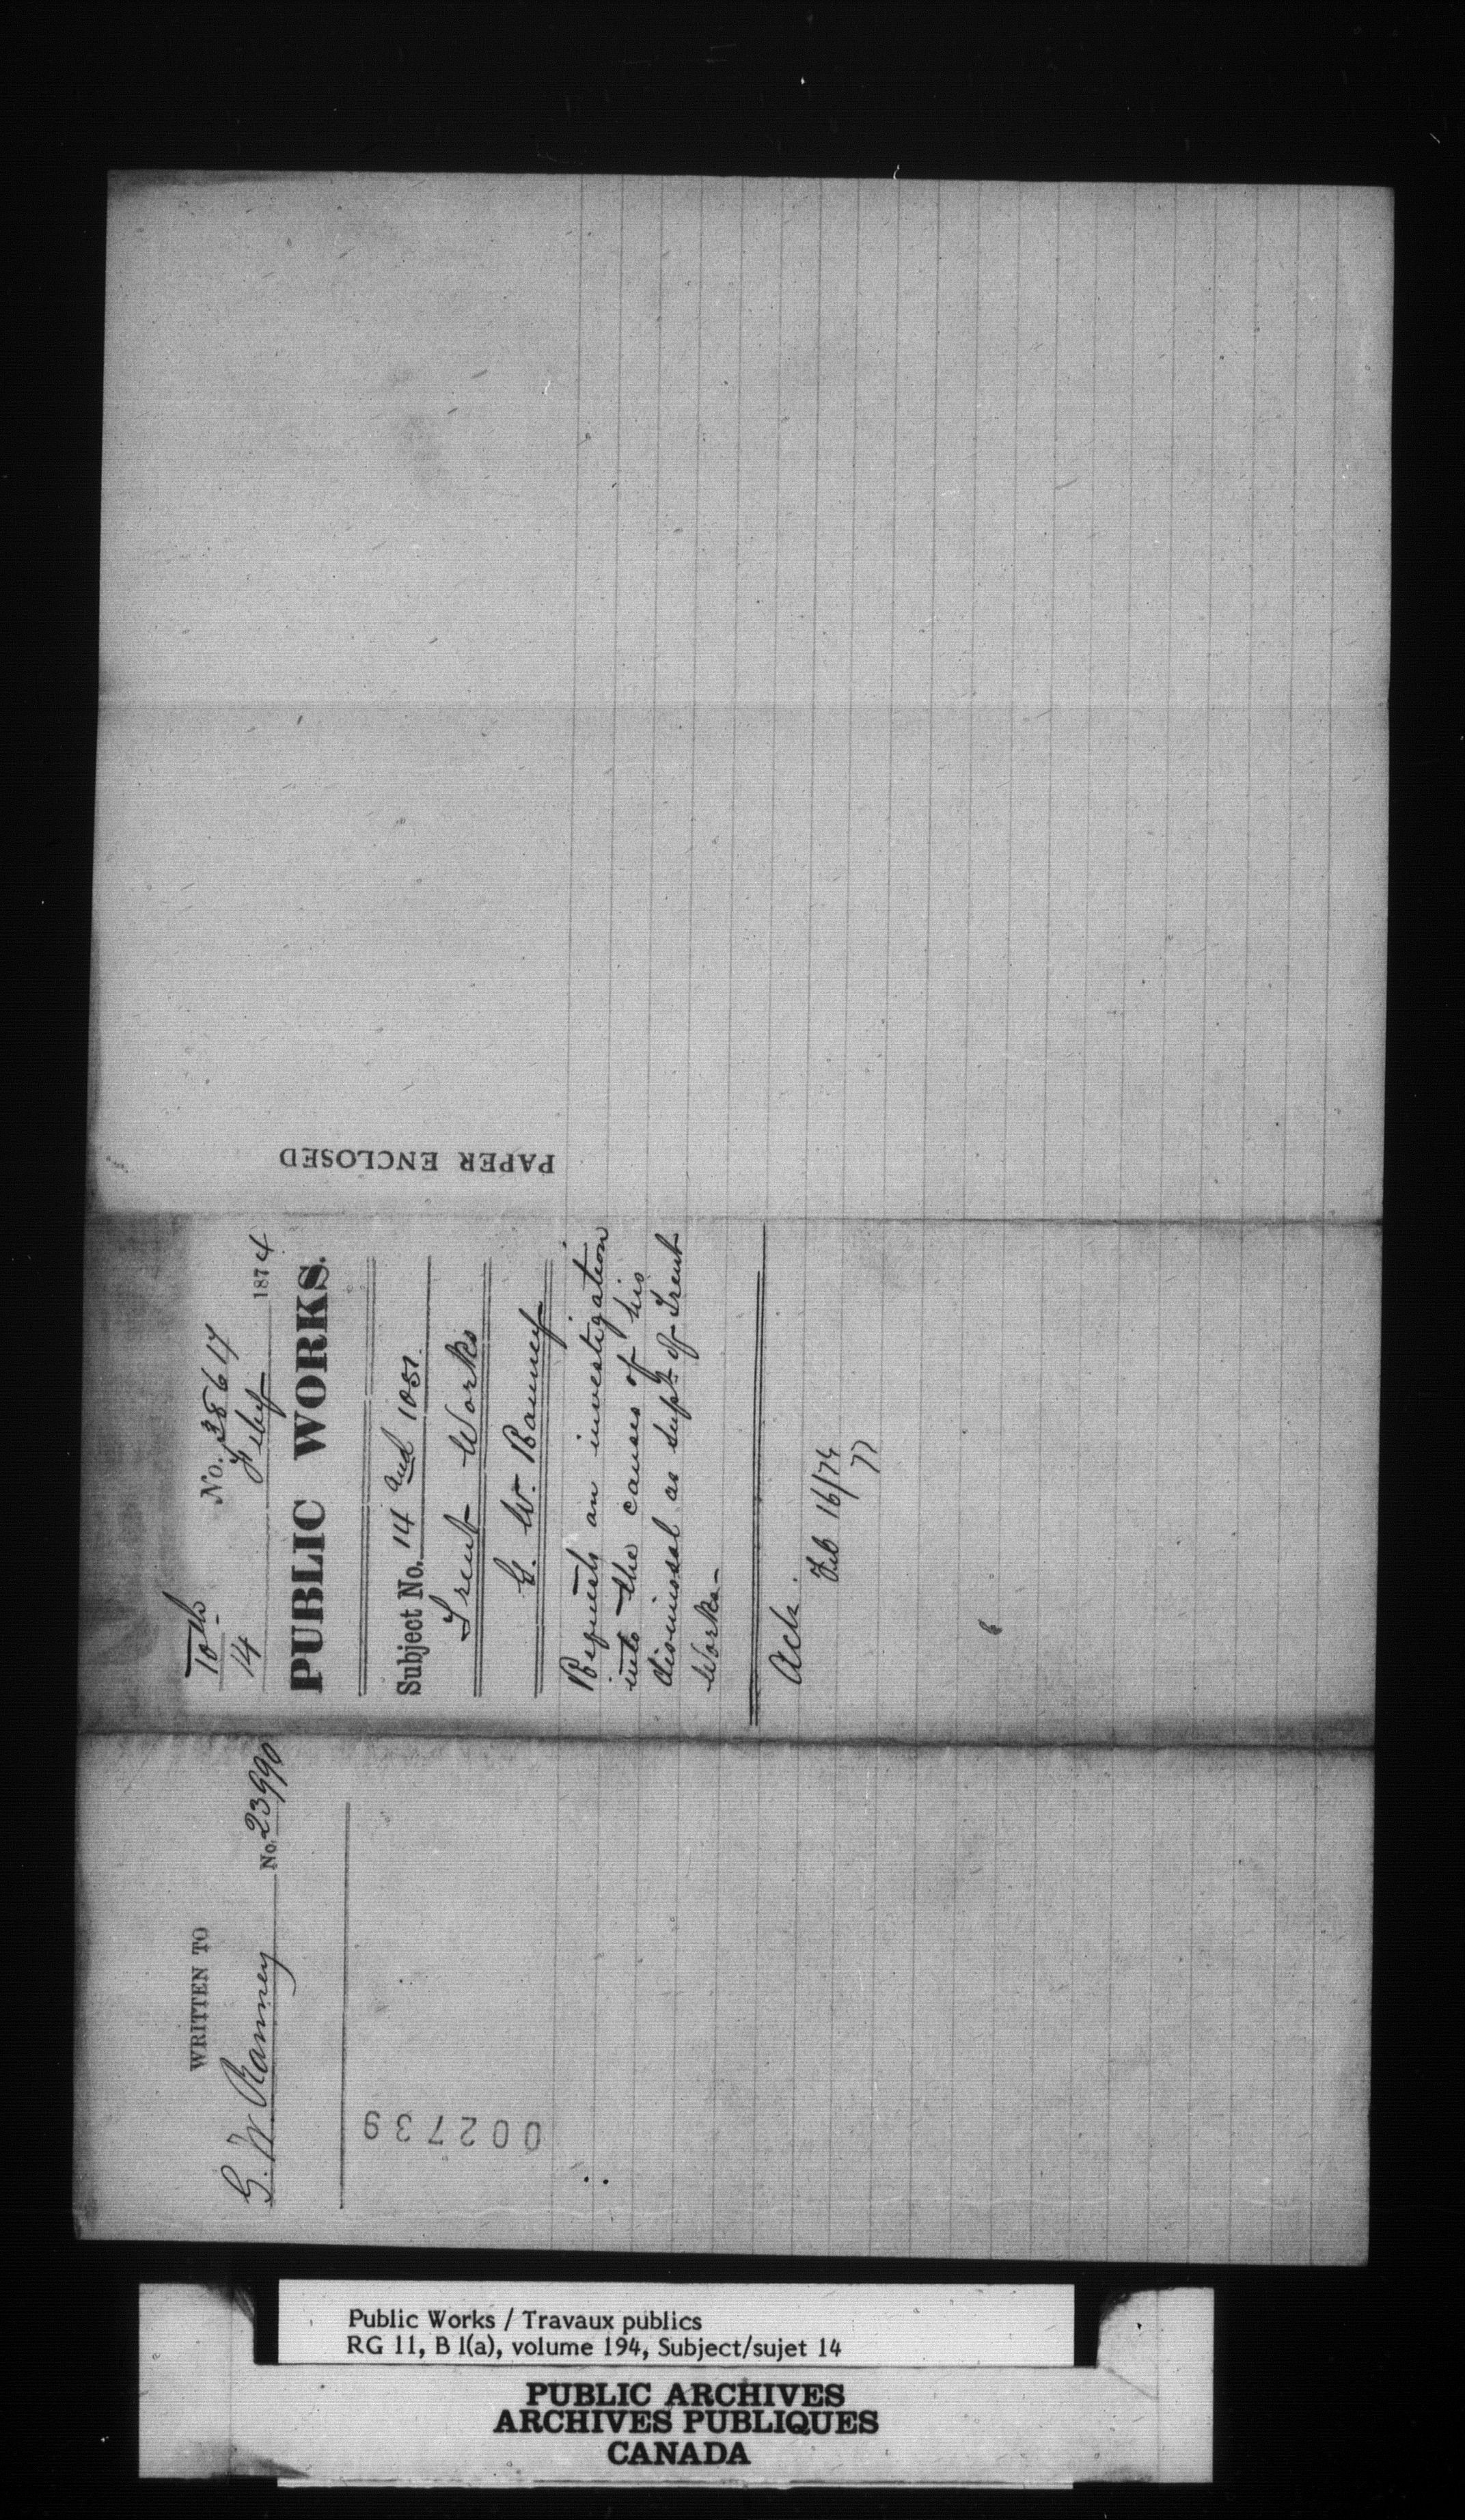 WRITTEN TO
G. W. Ranney No. 23990
002739
10th No. 38617
14 Feby 1874
PUBLIC WORKS.
Subject No. 14 and 1051.
Trent Works
G. W. Ranney
Requests an investigation
into the causes of his
dismissal as Supt. of Trent
Works—
Ack.
Feb 16/74
PAPER ENCLOSED
Public Works / Travaux publics
RG 11, B 1(a), volume 194, Subject/sujet 14
PUBLIC ARCHIVES
ARCHIVES PUBLIQUES
CANADA